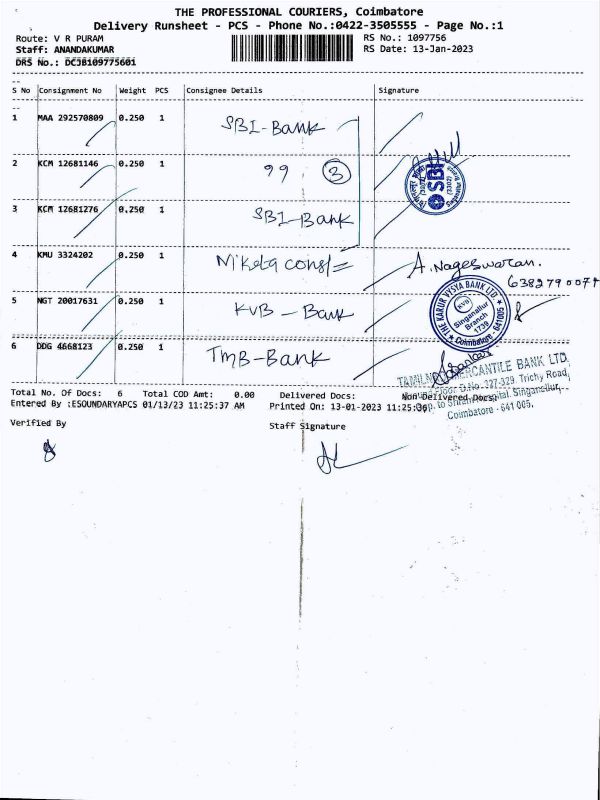 THE PROFESSIONAL COURIERS, Coimbatore
Delivery Runsheet - PCS - Phone No.:0422-3505555 - Page No.:1
Route: V R PURAM
Staff: ANANDAKUMAR
DRS No.: DCJB109775601
RS No.: 1097756
RS Date: 13-Jan-2023
S No Consignment No Weight PCS Consignee Details Signature
1 MAA 292570809 0.250 1 SBI-Bank
2 KCM 12681146 0.250 1 99 3
SBI
3 KCM 12681276 0.250 1 SBI-Bank
4 KMU 3324202 0.250 1 A. Nageswaran.
5 NGT 20017631 0.250 1 KVB - Bank
THE KARUR VYSYA BANK LTD.
KVB
Singanallur
Branch
1739
Coimbatore - 641005
6 DDG 4668123 0.250 1 TMB-Bank
TAMILNAD MERCANTILE BANK LTD,
Floor D.No. 327-329, Trichy Road,
Opp. to Hospital, Singanallur,
Coimbatore - 641 005.
Total No. Of Docs: 6 Total COD Amt: 0.00 Delivered Docs: Non Delivered Docs:
Entered By :ESOUNDARYAPCS 01/13/23 11:25:37 AM Printed On: 13-01-2023 11:25:36
Verified By
Staff Signature